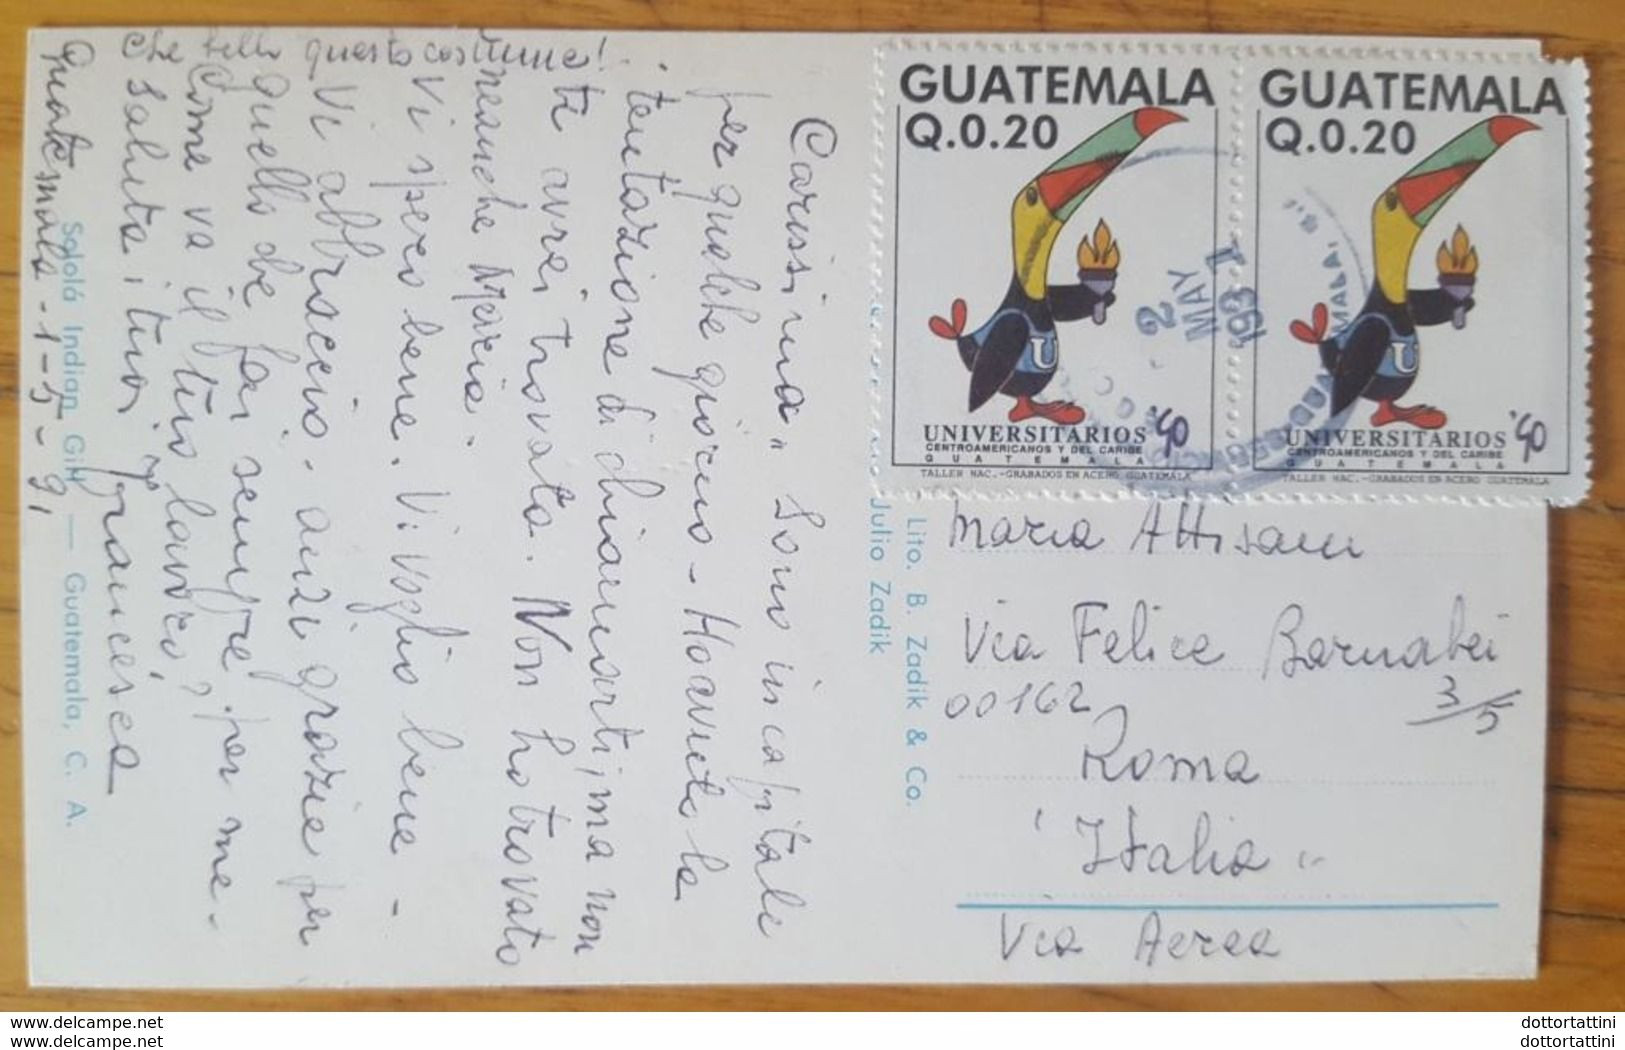 Che bello questo costume!..
Guatemala - 1-5-91
Carissima" Sono in capitale
per qualche giorno - Ho avuto la
tentazione di chiamarti, ma non
ti avrei trovata. Non ho trovato
neanche Maria.
Vi spero bene. Vi voglio bene -
Vi abbraccio. anzi grazie per
quello che fai sempre per me.
Come va il tuo lavoro?
Saluta i tuoi
Francesca
Sololá Indian Girl — Guatemala, C. A.
Lito. B. Zadik & Co.
Julio Zadik
GUATEMALA
Q.0.20
U
UNIVERSITARIOS '90
CENTROAMERICANOS Y DEL CARIBE
GUATEMALA
TALLER NAC.-GRABADOS EN ACERO GUATEMALA
GUATEMALA
Q.0.20
U
UNIVERSITARIOS '90
CENTROAMERICANOS Y DEL CARIBE
GUATEMALA
TALLER NAC.-GRABADOS EN ACERO GUATEMALA
2
MAY
1991
Maria Attisani
Via Felice Barnabei
3/5
00162
Roma
Italia
Via Aerea
www.delcampe.net
www.delcampe.net
dottortattini
dottortattini